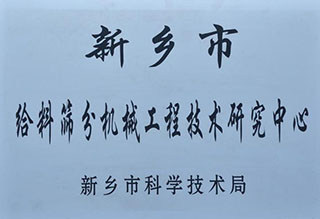 新乡市
给料筛分机械工程技术研究中心
新乡市科学技术局